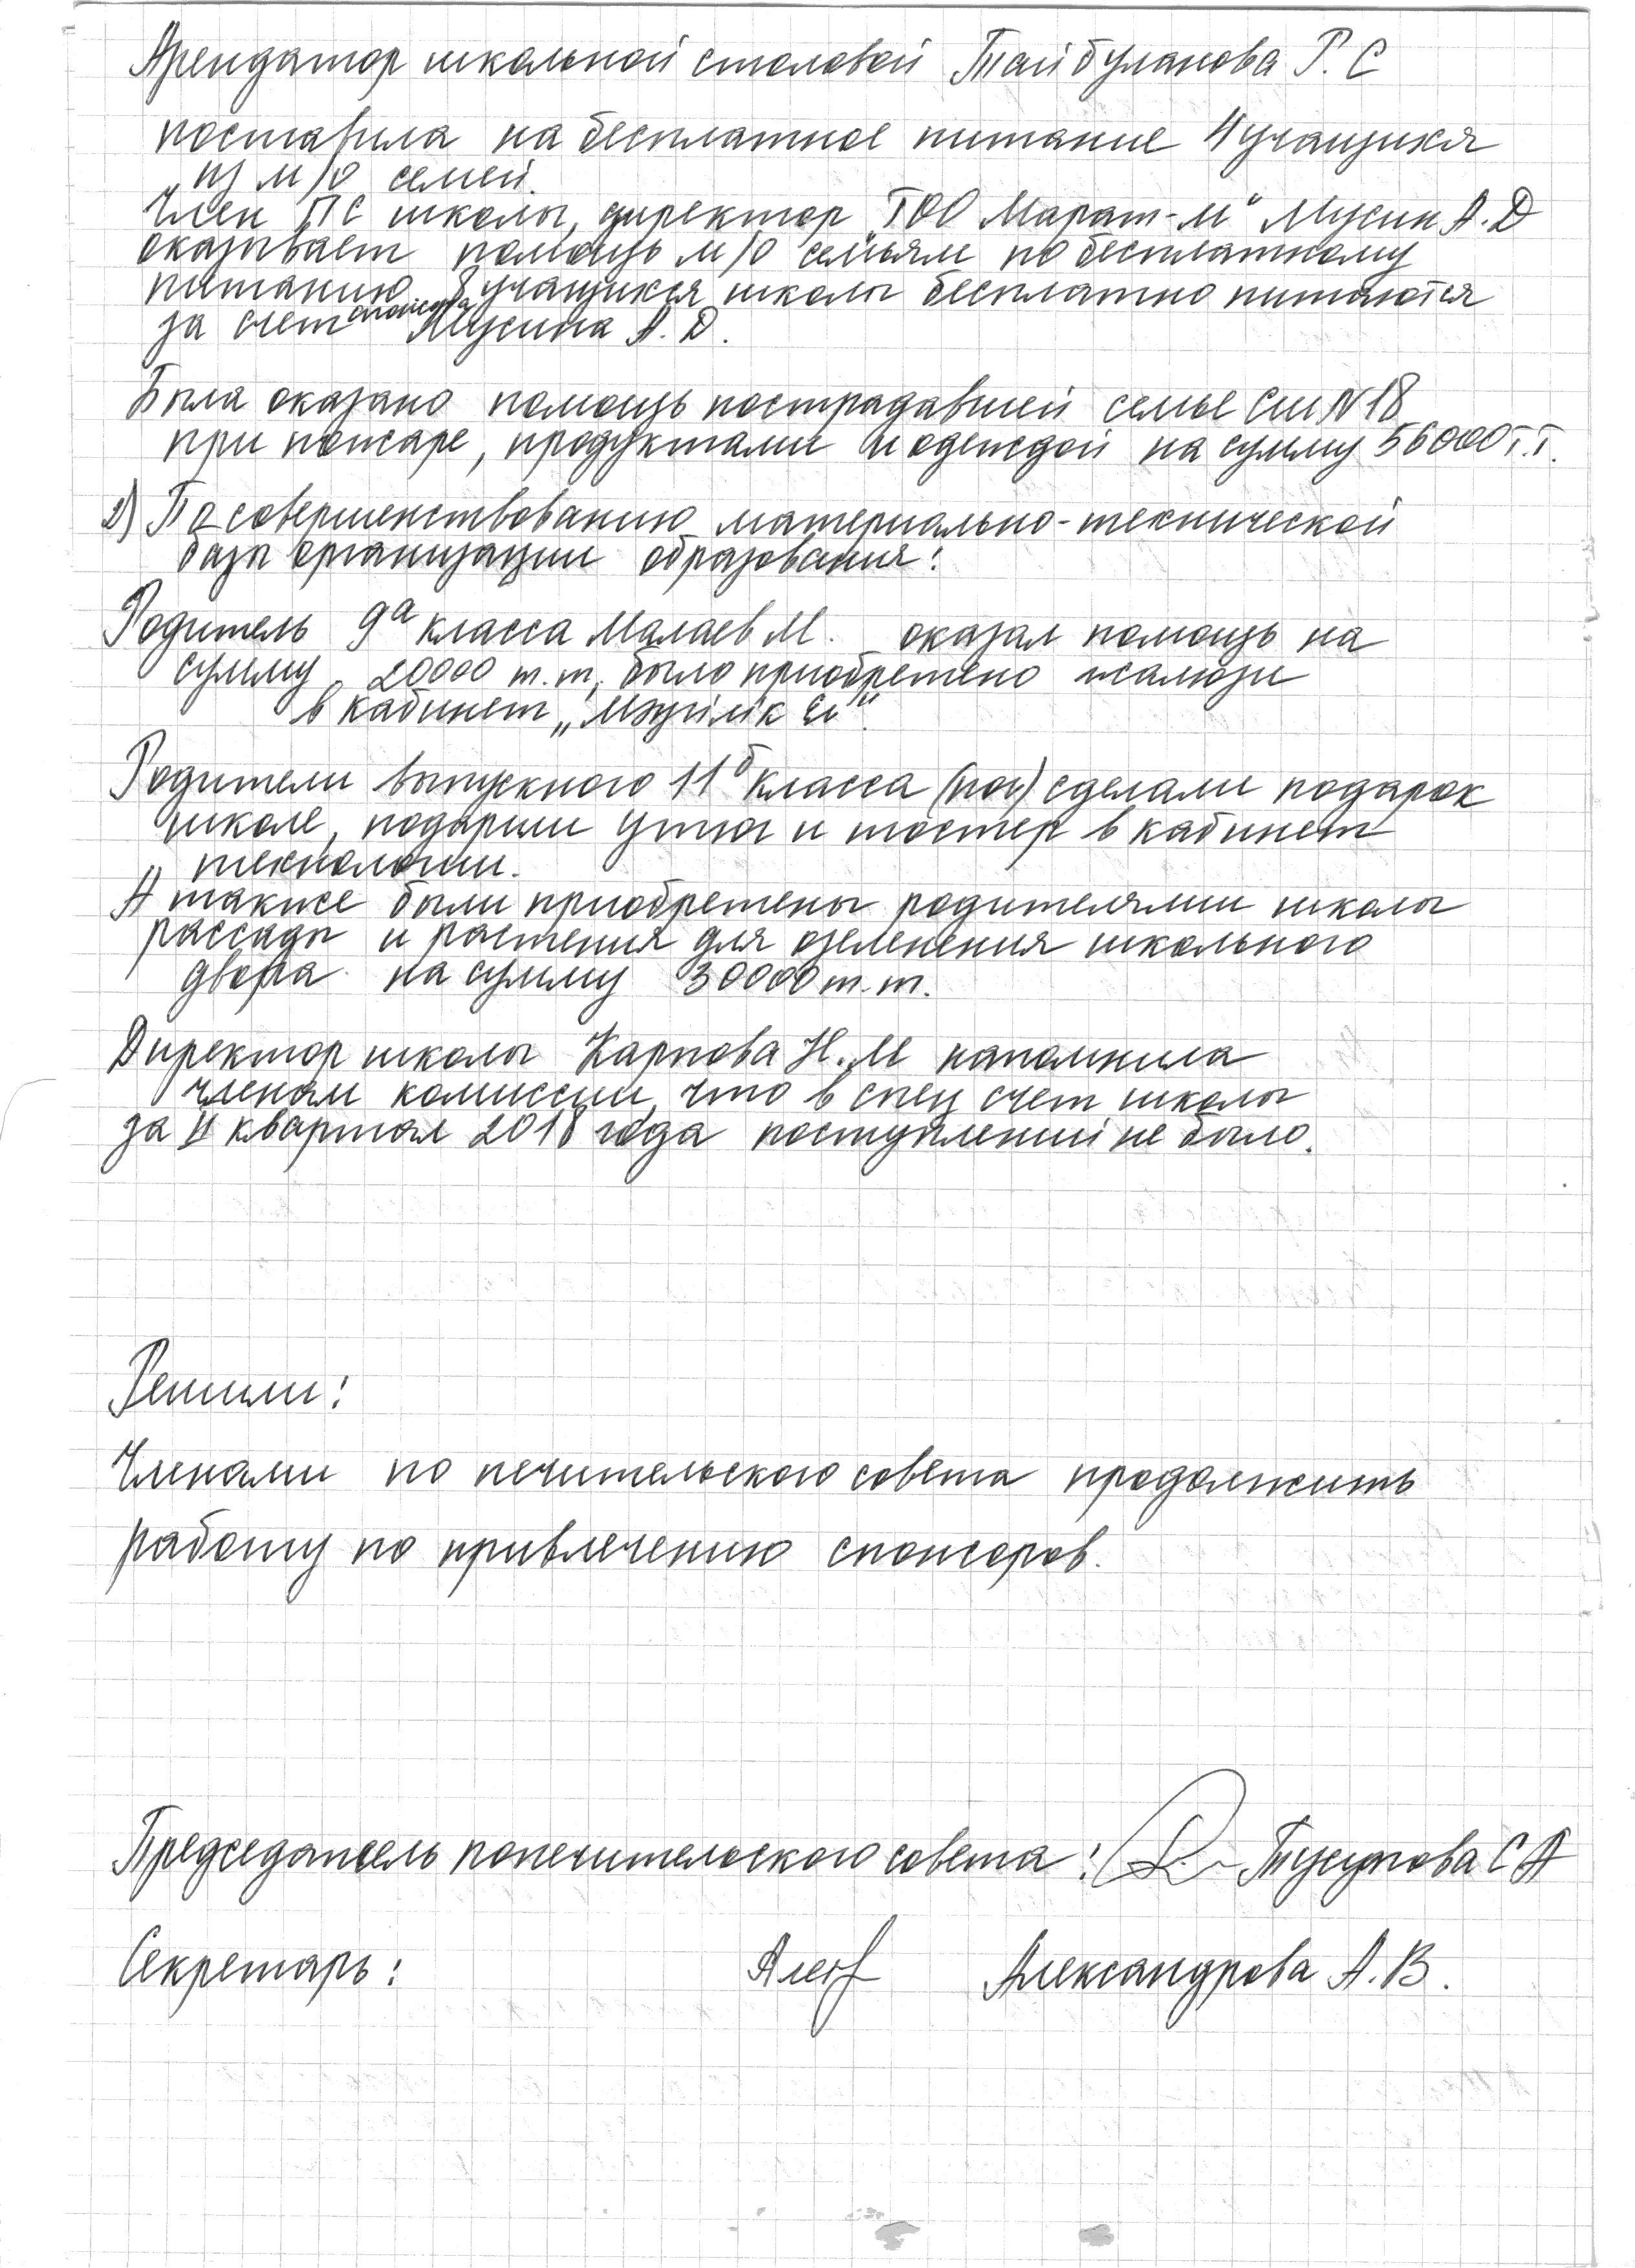 Арендатор школьной столовой Тайбуланова Р. С
поставила на бесплатное питание 4 учащихся
из м/о семей.
Член ПС школы, директор „ТОО Марат-М" Мусин А. Д
оказывает помощь м/о семьям по бесплатному
питанию 8 учащихся школы бесплатно питаются
за счет спонсора Мусина А. Д.
Была оказано помощь пострадавшей семье СШ N18
при пожаре, продуктами и одеждой на сумму 56000 т.т.
2) По совершенствованию материально-технической
базы организации образования:
Родитель 9а класса Малаев М. оказал помощь на
сумму 20000 т.т. было приобретено жалюзи
в кабинет „Мәңгілік Ел".
Родители выпускного 11б класса сделали подарок
школе, подарили утюг и тостер в кабинет
технологии.
А также были приобретены родителями школы
рассады и растения для озеленения школьного
двора на сумму 30000 т.т.
Директор школы Карпова Н. М напомнила
членам комиссии, что в спец счет школы
за II квартал 2018 года поступлений не было.
Решили:
Членами по печительского совета продолжить
работу по привлечению спонсоров.
Председатель попечительского совета: Тусупова С А
Секретарь: Александрова А. В.